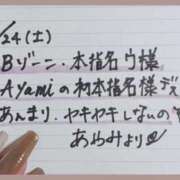 /24(土)
Bゾーン・本指名ウ様
Ayamiの初本指名様デス
あんまり、ヤキヤキしないの
あゆみより